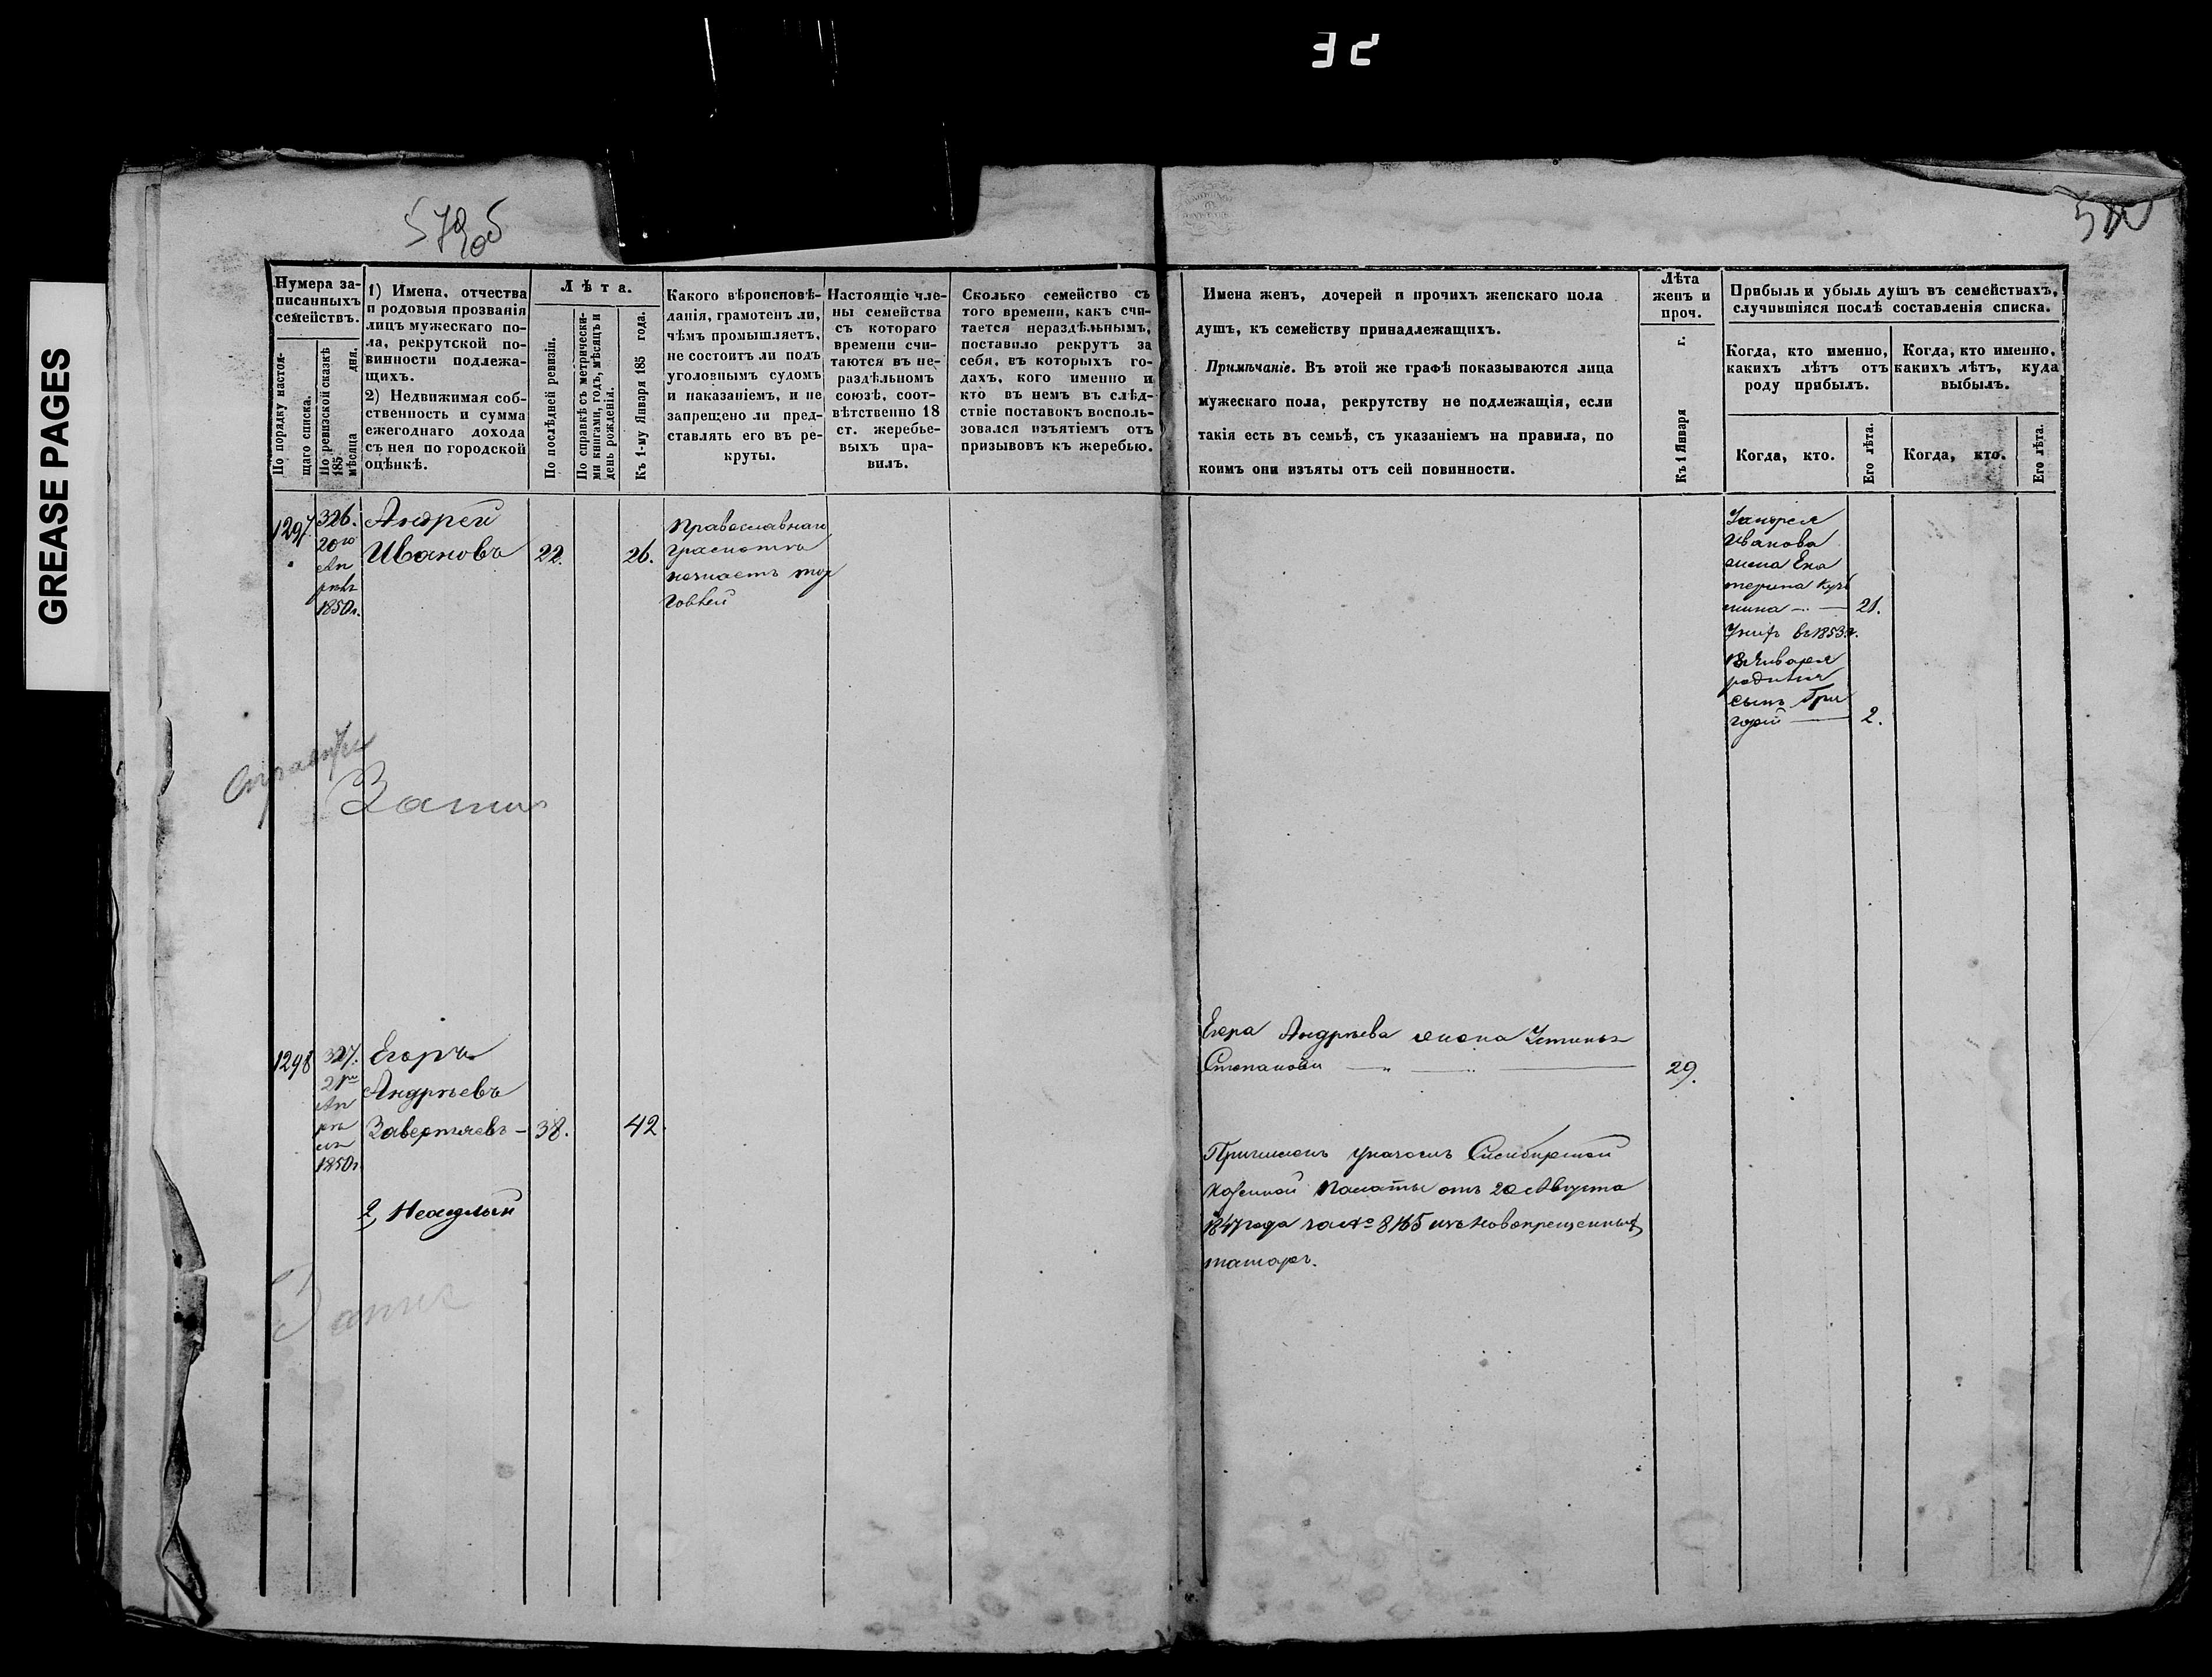 GREASE PAGES
579 об
580
Нумера записанныхъ семействъ.
По порядку настоящаго списка.
По ревизской сказкѣ 185 мѣсяца дня.
1) Имена, отчества
и родовыя прозванія
лицъ мужескаго по-
ла, рекрутской по-
винности подлежа-
щихъ.
2) Недвижимая соб-
ственность и сумма
ежегоднаго дохода
съ нея по городской
оцѣнкѣ.
Лѣта.
По послѣдней ревизіи.
По справкѣ съ метрически-
ми книгами, годъ, мѣсяцъ и
день рожденія.
Къ 1-му Января 185 года.
Какого вѣроисповѣ-
данія, грамотенъ ли,
чѣмъ промышляетъ,
не состоитъ ли подъ
уголовнымъ судомъ
и наказаніемъ, и не
запрещено ли пред-
ставлять его въ ре-
круты.
Настоящіе чле-
ны семейства
съ котораго
времени счи-
таются въ не-
раздѣльномъ
союзѣ, соот-
вѣтственно 18
ст. жеребье-
выхъ пра-
вилъ.
Сколько семейство съ
того времени, какъ счи-
тается нераздѣльнымъ,
поставило рекрутъ за
себя, въ которыхъ го-
дахъ, кого именно и
кто въ немъ въ слѣд-
ствіе поставокъ восполь-
зовался изъятіемъ отъ
призывовъ къ жеребью.
Имена женъ, дочерей и прочихъ женскаго пола
душъ, къ семейству принадлежащихъ.
Примѣчаніе. Въ этой же графѣ показываются лица
мужескаго пола, рекрутству не подлежащія, если
такія есть въ семьѣ, съ указаніемъ на правила, по
коимъ они изъяты отъ сей повинности.
Лѣта
женъ и
проч.
Къ 1 Января г.
Прибыль и убыль душъ въ семействахъ,
случившіяся послѣ составленія списка.
Когда, кто именно,
какихъ лѣтъ отъ
роду прибылъ.
Когда, кто именно,
какихъ лѣтъ, куда
выбылъ.
Когда, кто.
Его лѣта.
Когда, кто.
Его лѣта.
1297
326.
20го
Ап
рѣля
1850г.
Андрей
Ивановъ 22. 26.
Православнаго
грамотѣ
незнаетъ тор
говлей
Андрея
Иванова
жена Ека
терина Кузь
мина 21.
У нихъ въ 1853г.
Января
родился
сынъ Гри
горій 2.
1298
327.
Ап
рѣ
ля
1850г.
Егоръ
Андрѣевъ
Завертяевъ 38. 42.
2, Неимѣетъ
Егора Андрѣева жена Устинья
Степанова 29.
Причисленъ указомъ Симбирской
Казенной Палаты отъ 20 Августа
1847 года за № 8165 изъ новокрещенныхъ
татаръ.